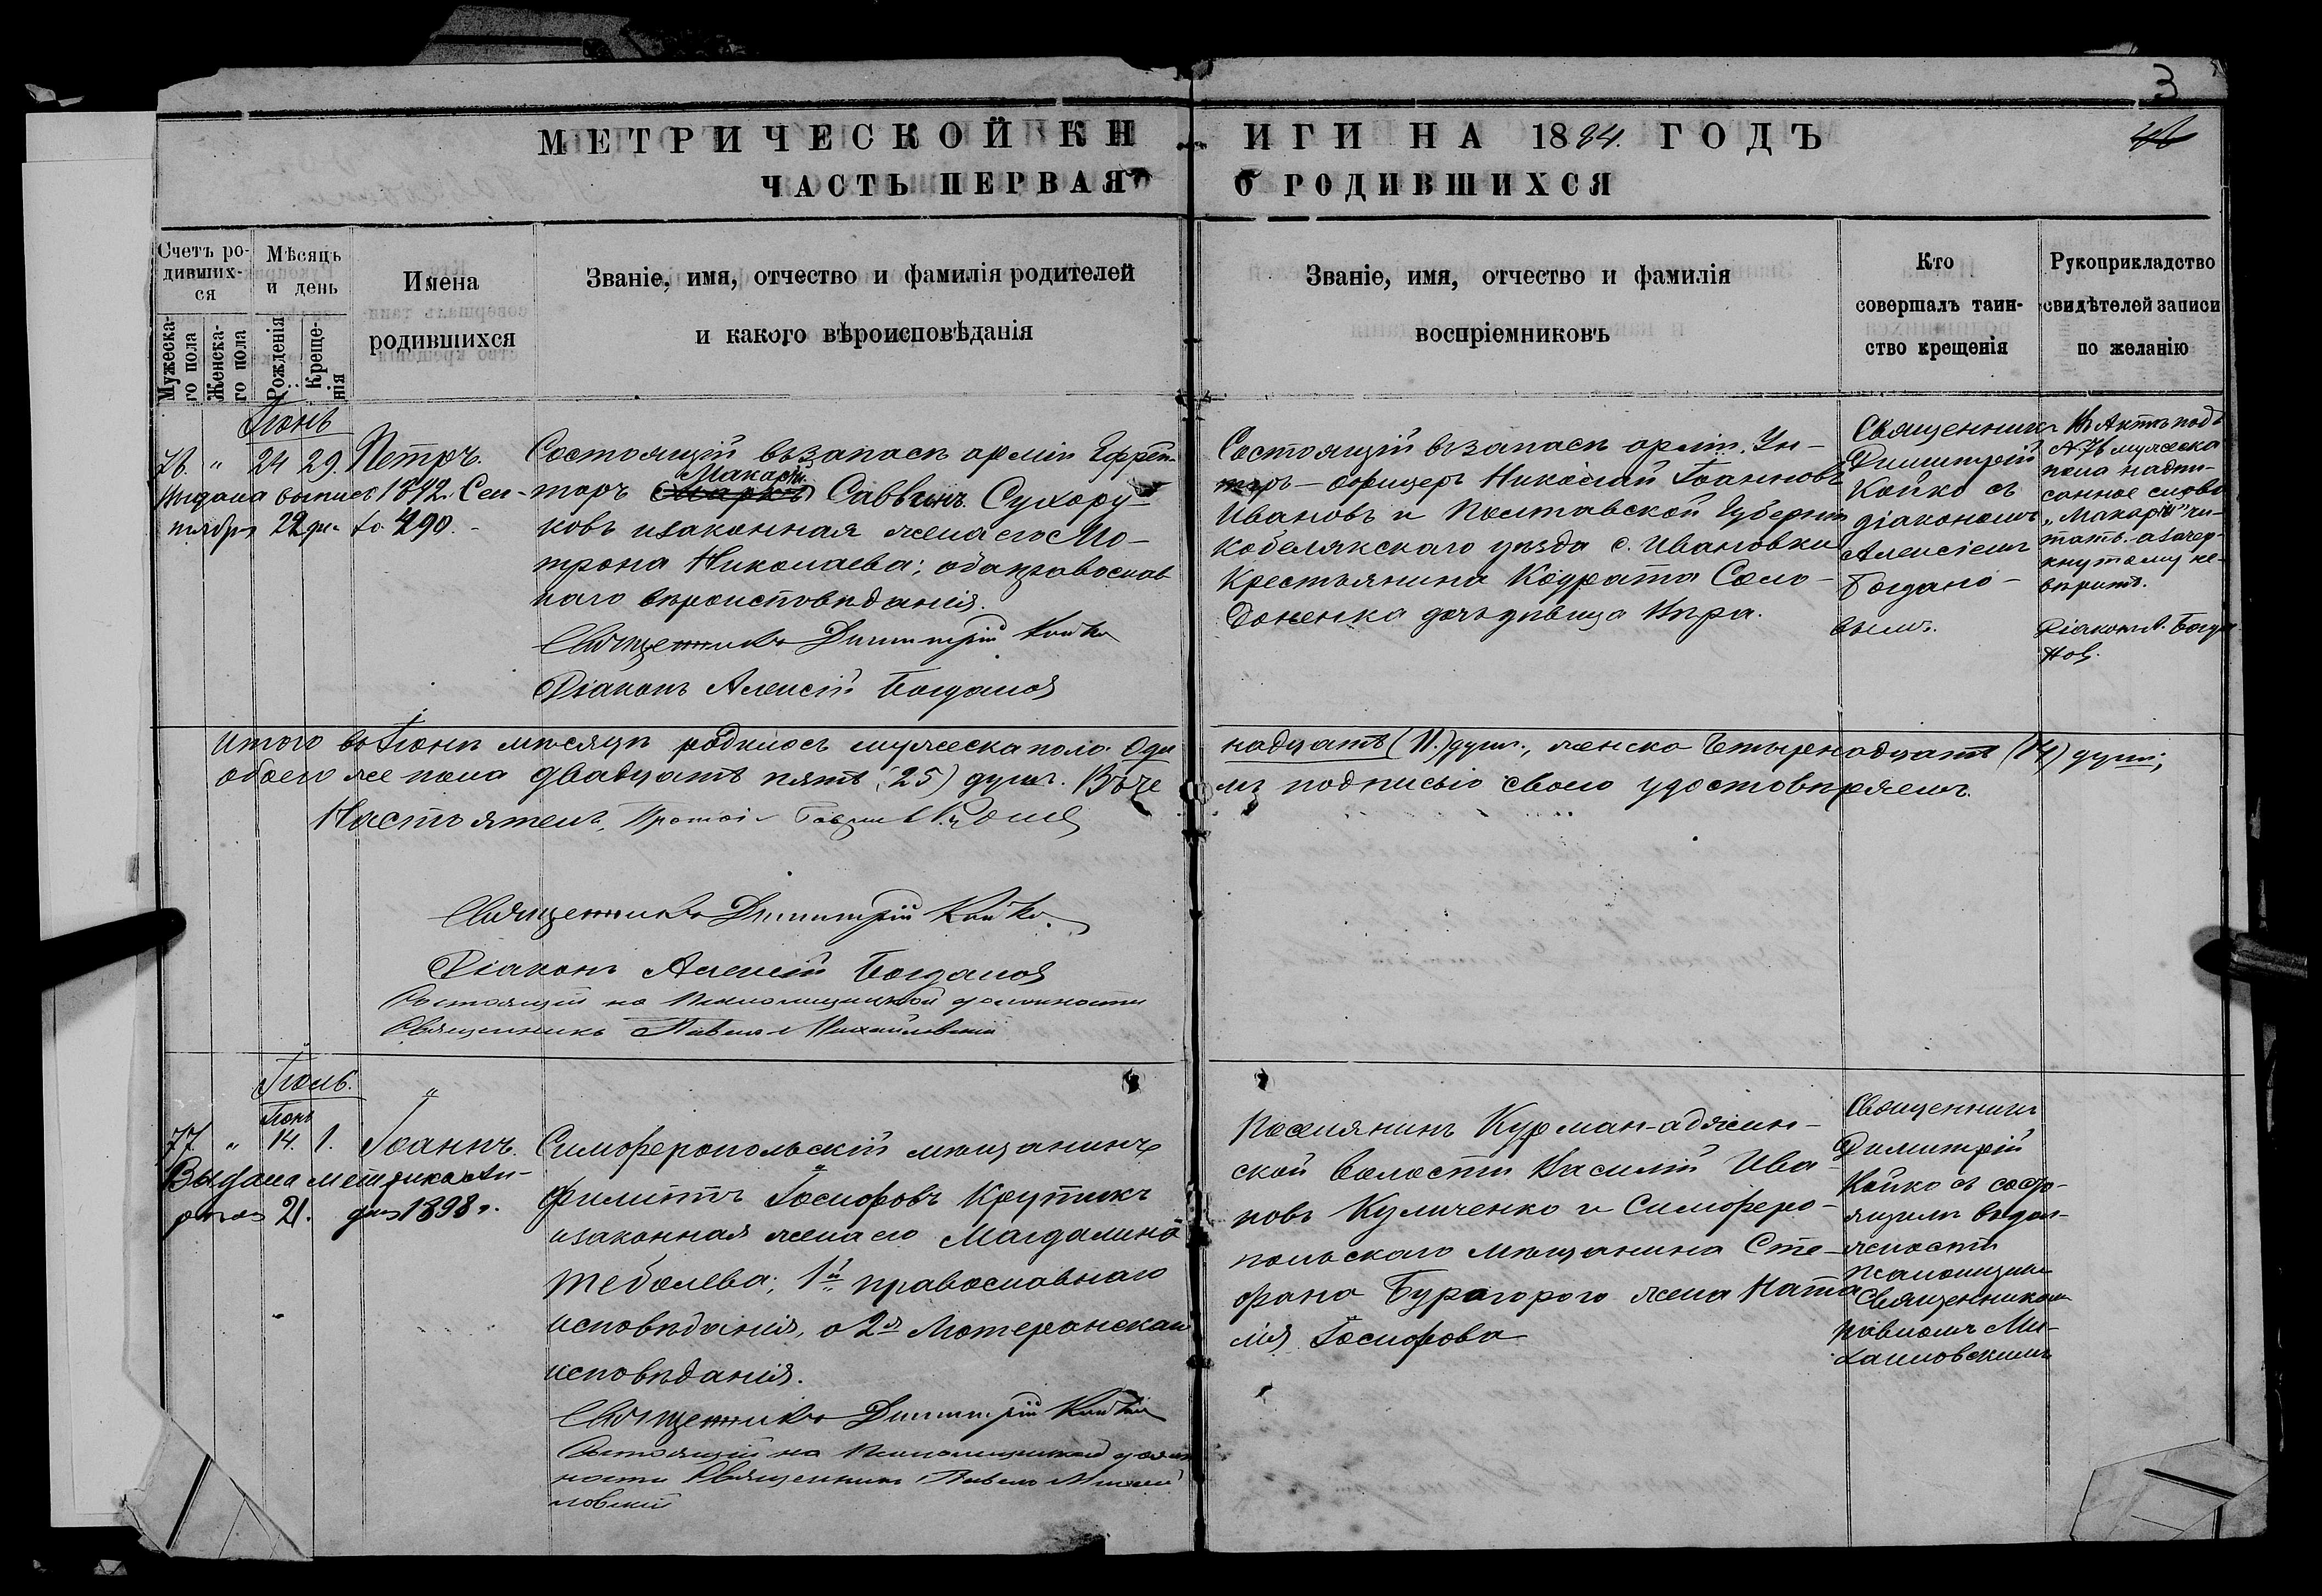 3
МЕТРИЧЕСКОЙ КНИГИ НА 1884. ГОДЪ
ЧАСТЬ ПЕРВАЯ О РОДИВШИХСЯ
Счетъ ро-
дивших-
ся
Мужеска-
го пола
Женска-
го пола
Мѣсяцъ
и день
Рожденія
Креще-
нія
Имена
родившихся
Званіе, имя, отчество и фамилія родителей
и какого вѣроисповѣданія
Званіе, имя, отчество и фамилія
воспріемниковъ
Кто
совершалъ таин-
ство крещенія
Рукоприкладство
свидѣтелей записи
по желанію
Іюнь
76. " 24 29. Петръ.
Выдана выпись 1892. Сен-
тября 22 дня 490.
Состоящій въ запасѣ арміи Ефрей-
Макарій
торъ Саввинъ Сухору-
ковъ и законная жена его Мо-
трона Николаева; оба православ-
наго вѣроисповѣданія.
Священникъ Димитрій Койко
Діаконъ Алексій Богдановъ
Состоящій въ запасѣ арміи Ун-
теръ-офицеръ Николай Іоанновъ
Ивановъ и Полтавской Губерніи
Кобелякскаго уѣзда с. Ивановки
Крестьянина Кодрата Соло-
доненка дочь дѣвица Кира.
Священникъ
Димитрій
Койко съ
діакономъ
Алексіемъ
Богдано-
вымъ.
Въ Актѣ подъ
№76 мужеска
пола надпи-
санное слово
„Макарій" чи-
тать, а зачер-
кнутому не-
вѣрить.
Діаконъ А. Богда
новъ.
Итого въ Іюнѣ мѣсяцѣ родилось мужеска пола Оди
надцать (11.) душъ, женска Четырнадцать (14) душъ,
обоего же пола двадцать пять (25) душъ. Въ че
мъ подписью своею удостовѣряемъ.
Настоятель,
Священникъ Димитрій Койко.
Діаконъ Алексій Богдановъ
Состоящій на Псаломщицкой должности
Священникъ Павелъ Михайловскій
Іюль.
Іюнь
77. " 14. 1. Іоаннъ.
Выдана метрика Ап-
рѣля 21. дня 1898 г.
Симферопольскій мѣщанинъ
Филиппъ Іосифовъ Крутикъ
и законная жена его Магдалина
Теболева; 1й православнаго
исповѣданія, а 2я Лютеранскаго
исповѣданія.
Священникъ Димитрій Койко
Состоящій на Псаломщицкой долж
ности Священникъ Павелъ Михай
ловскій
Поселянинъ Курман-аджин-
ской волости Василій Ива-
новъ Куличенко и Симферо-
польскаго мѣщанина Сте-
фана жена Ната
лія Іосифова
Священникъ
Димитрій
Койко съ состо-
ящимъ въ дол-
жности
псаломщика
Священникомъ
Павломъ Ми-
хайловскимъ